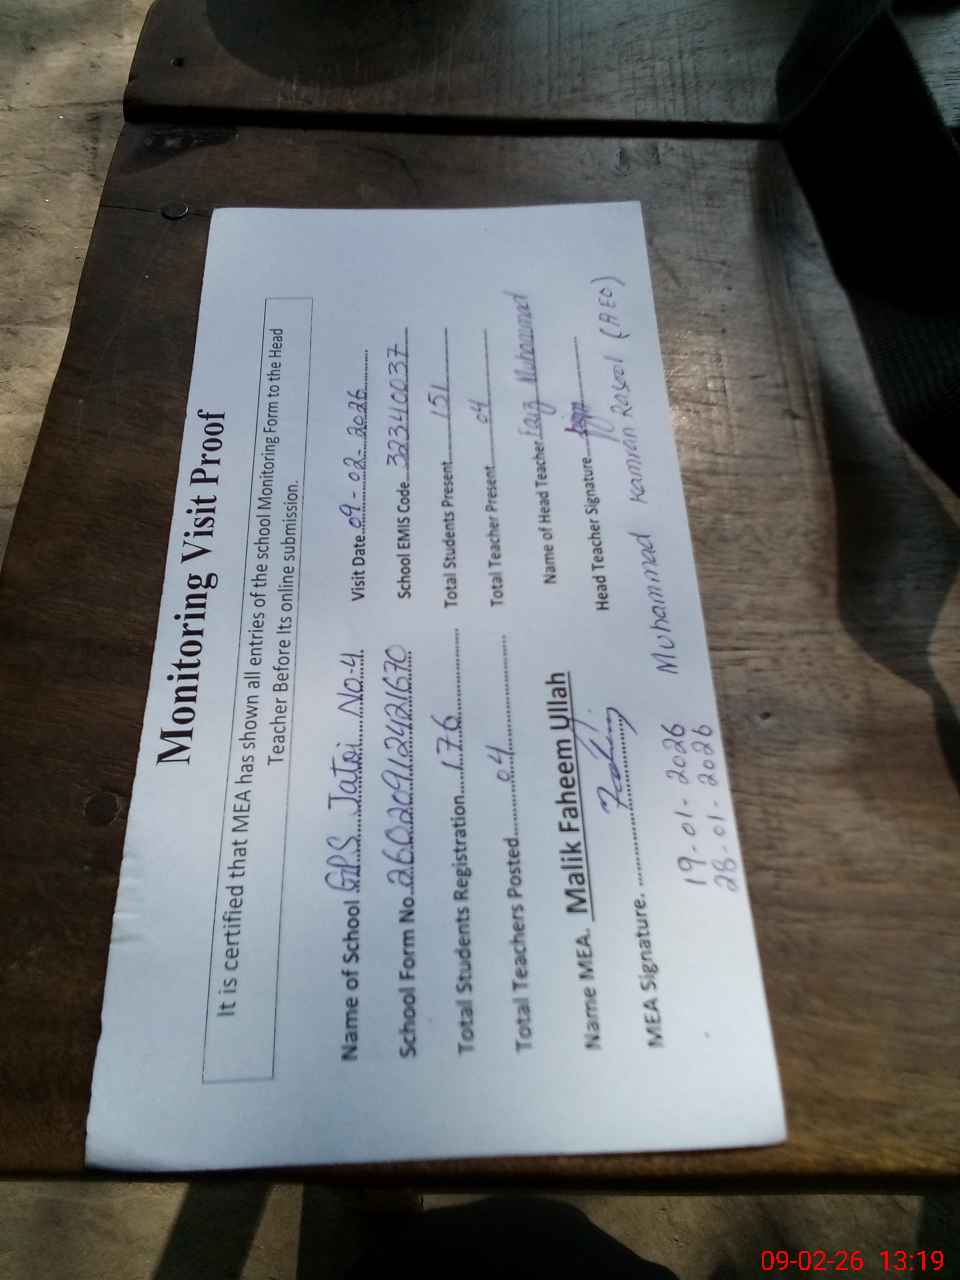 Monitoring Visit Proof
It is certified that MEA has shown all entries of the school Monitoring Form to the Head
Teacher Before Its online submission.
Name of School GPS Jatoi No-4 Visit Date 09-02-2026
School Form No. 26020912421670 School EMIS Code 32340037
Total Students Registration 176 Total Students Present 151
Total Teachers Posted 04 Total Teacher Present 04
Name MEA. Malik Faheem Ullah Name of Head Teacher Faiz Muhammad
MEA Signature. Head Teacher Signature
19-01-2026 Muhammad Kamran Rasool (AEO)
28-01-2026
09-02-26 13:19